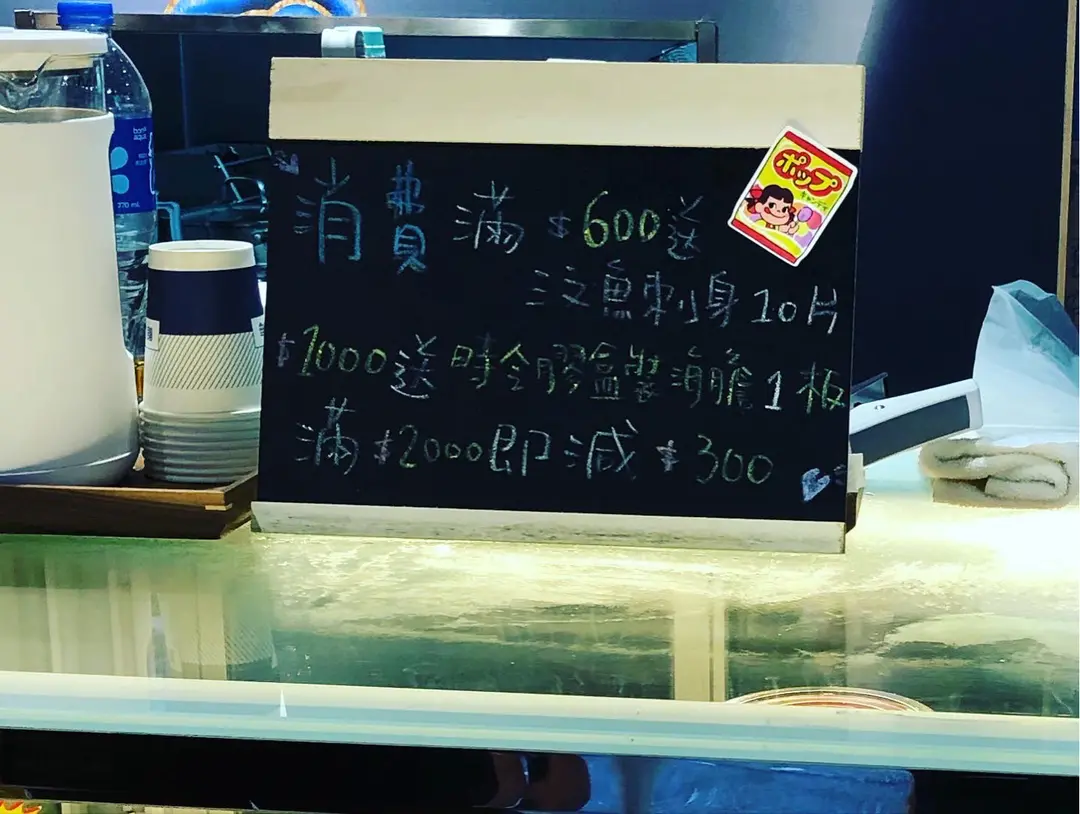 消費滿$600送
三文魚刺身10片
$1000送時令膠盒裝海膽1板
滿$2000即減$300
ポップ
キャンデー
bonaqua
770 mL